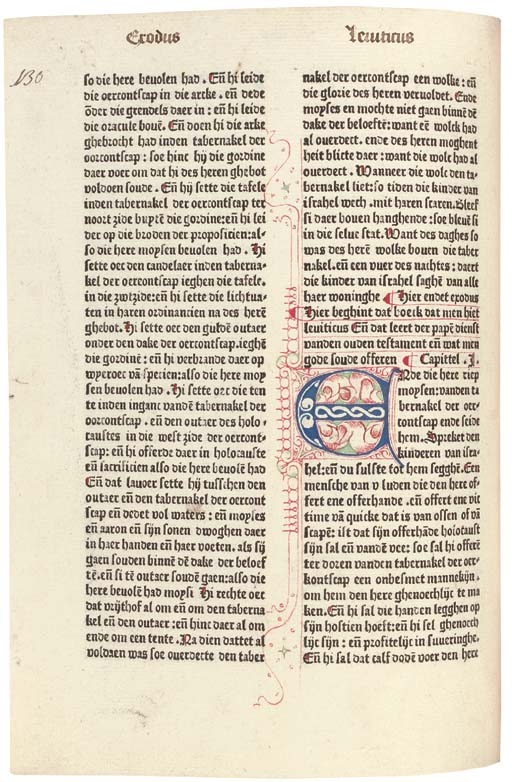 Exodus
Leuiticus
130
so die here beuolen had. Eñ hi leide
die oercontscap in die arcke. eñ dede
dõer die grendels daer in: eñ hi leide
die oracule bouẽ. Eñ doen hi die arke
ghebrocht had inden tabernakel der
oorcontscap: soe hinc hij die gordine
daer voer om dat hi des heren ghebot
voldoen soude. Eñ hij sette die tafele
inden tabernakel der oercontscap ter
noort zide buytẽ die gordine: eñ hi lei
der op die broden der proposicien: al-
so die here moysen beuolen had. Hi
sette oec den candelaer inden taberna-
kel der oercontscap ieghen die tafele.
in die zuytzide: eñ hi sette die lichtua-
ten in haren ordinancien na des herẽ
ghebot. Hi sette oec den guldẽ outaer
onder den dake der oercontscap. ieghẽ
die gordinẽ: eñ hi verbrande daer op
wyeroec vã specien: also die here moy
sen beuolen had. Hi sette oec die ten
te inden inganc vandẽ tabernakel der
oorcontscap. eñ den outaer des holo-
caustes in die west zide der oercont-
scap: eñ hi offerde daer in holocauste
eñ sacrificien also die here beuolẽ had
Eñ dat lauoer sette hij tusschen den
outaer eñ den tabernakel der oercont
scap eñ dedet vol waters: eñ moyses
eñ aaron eñ sijn sonen dwoghen daer
in haer handen eñ haer voeten. als sij
gaen souden binnẽ dẽ dake der beloef
tẽ. eñ si tẽ outaer soudẽ gaen: also die
here beuolẽ had moysi. Hi rechte oec
dat vrijthof al om eñ om den taberna
kel eñ den outaer: eñ hinc daer al om
ende om een tente. Na dien dattet al
voldaen was soe ouerdecte den taber
nakel der oercontscap een wolke: eñ
die glorie des heren veruoldet. Ende
moyses en mochte niet gaen binnẽ dẽ
dake der beloeftẽ: want een wolck had
al ouerdect. ende des heren moghent
heit blicte daer: want die wolc had al
ouerdect. Wanneer die wolc den ta-
bernakel liet: so tiden die kinder van
israhel wech. mit haren scaren. Bleef
si daer bouen hanghende: soe bleuẽ si
in die selue stat. Want des daghes so
was des herẽ wolke bouen die taber
nakel. eñ een vuer des nachtes: daert
die kinder van israhel saghẽ van alle
haer woninghe Hier endet exodus
Hier beghint dat boeck dat men hiet
leuiticus Eñ dat leert der papẽ dienst
vanden ouden testament eñ wat men
gode soude offeren Capittel. I.
Ende die here riep
moysen: vanden ta
bernakel der oer-
contscap ende seide
hem. Spreket den
kinderen van isra-
hel: eñ du sulste tot hem segghẽ. Een
mensche van v luden die den here of-
fert ene offerhande. eñ offert ene vic
time vã quicke dat is van ossen of vã
scapẽ: ist dat sijn offerhãde holocaust
sijn sal eñ vandẽ vee: soe sal hi offerẽ
ter dozen vanden tabernakel der oer-
kontscap een onbesmet mannekijn.
om hem den here ghenoechlijc te ma
ken. Eñ hi sal die handen legghen op
sijn hostien hoeft: eñ hi sel ghenoech
lijc sijn: eñ profitelijc in suueringhe.
Eñ hi sal dat calf dodẽ voer den here